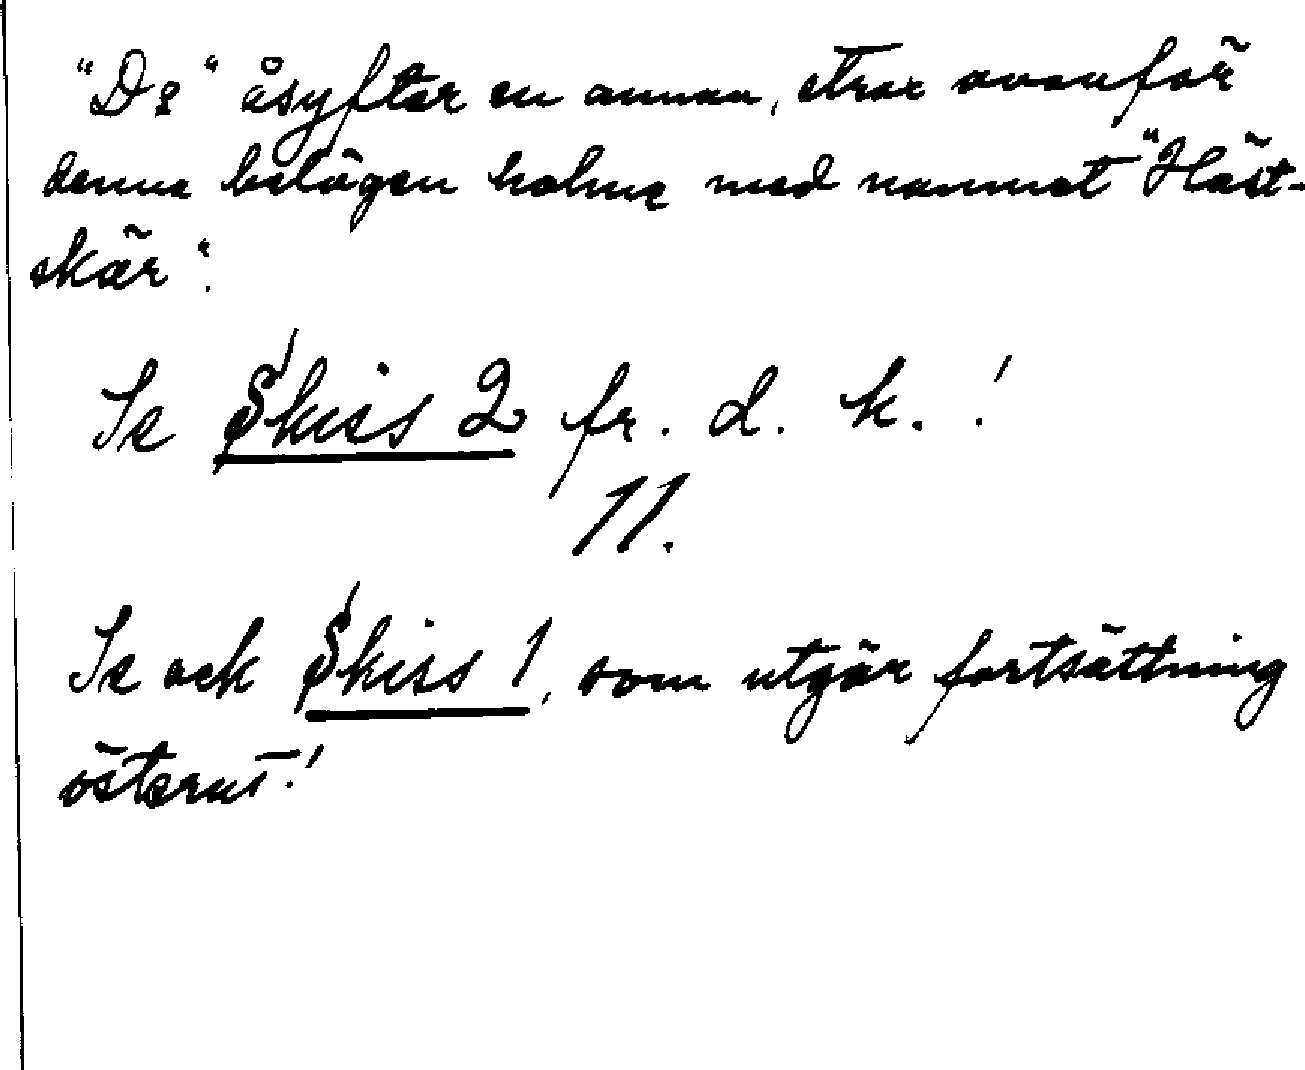 "De" åsyftar en annan, strax ovanför
denna belägen holme med namnet "Häst-
skär".
Se Skiss 2 fr. d. k.!
11.
Se ock Skiss 1, som utgör fortsättning
österut!